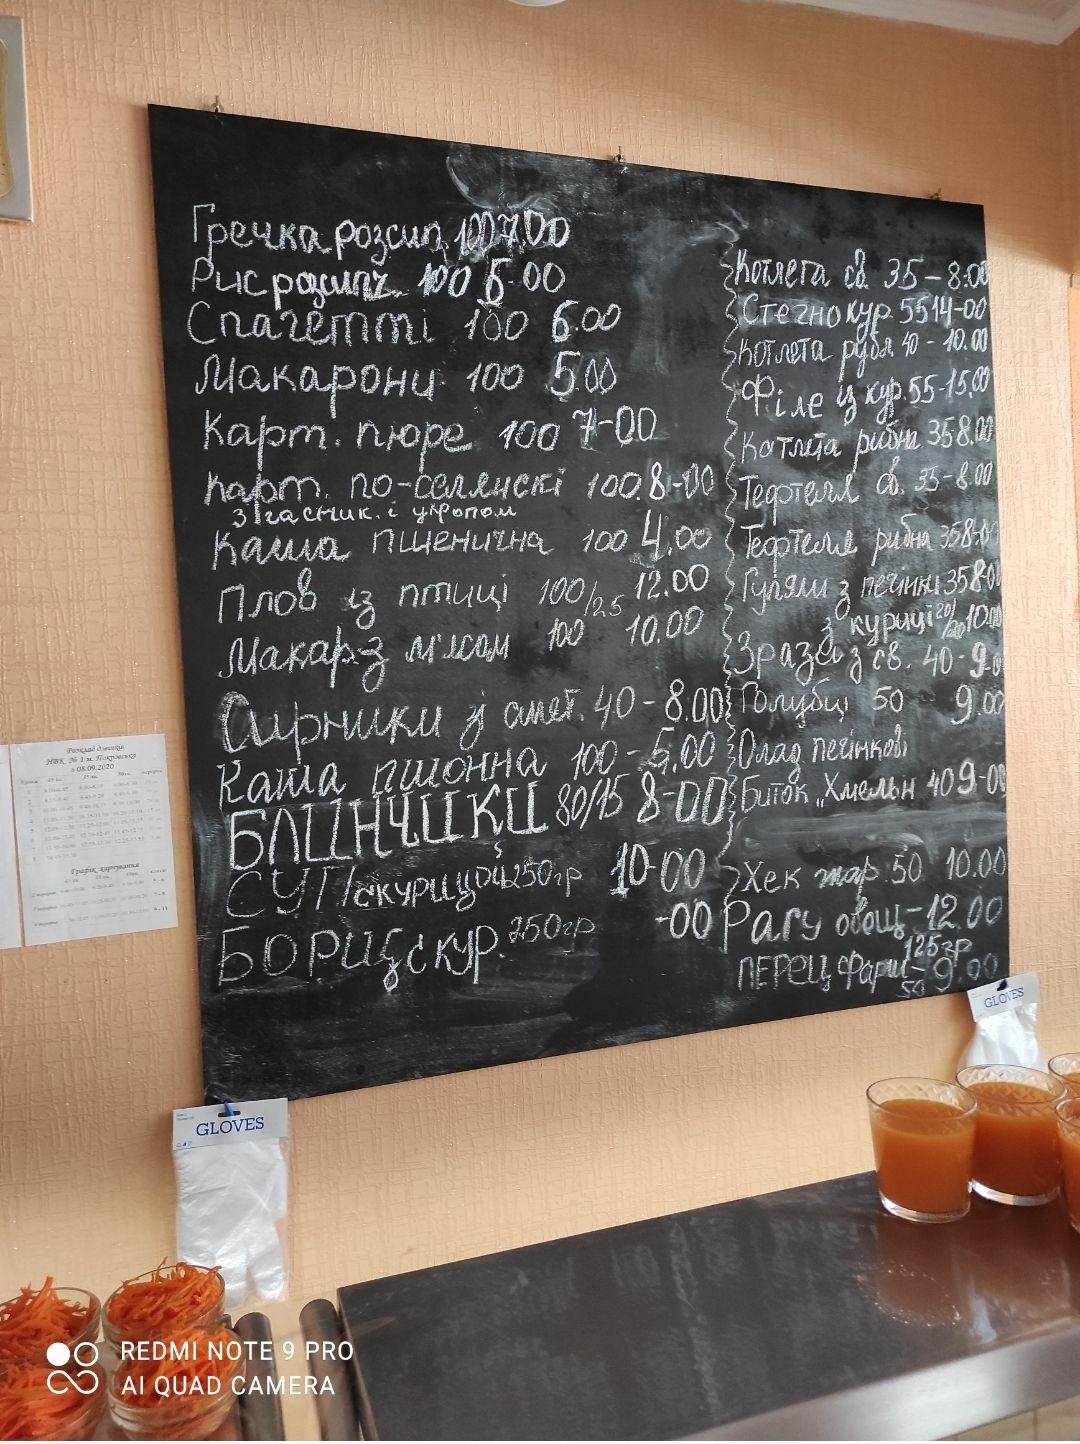 Гречка розсип. 100 7,00
Рис розсипч. 100 6.00
Спагетті 100 6.00
Макарони 100 5.00
Карт. пюре 100 7-00
Карт. по-селянскі 100. 8-00
з часник. і укропом
Каша пшенична 100 4.00
Плов із птиці 100/25 12.00
Макар-з м'ясом 100 10.00
Сирники зі смет. 40 - 8.00
Каша пшонна 100 - 5,00
БЛИНЧИКИ 80/15 8-00
СУП/с курицой 250гр 10-00
БОРЩ с кур. 250гр -00
Котлета св. 35-8.00
Стегно кур. 55 14-00
Котлета рубл 40 - 10.00
Філе из кур. 55-15,00
Котлета рибна 35 8.00
Тефтеля св. 35-8.00
Тефтеля рибна 35 8-00
Гуляш з печінкі 35 8.00
з куриці 20/20 10.00
Зрази з св. 40-9.00
Голубці 50 9.00
Олад печінкові
Биток "Хмельн 40 9-00
Хек жар. 50 10.00
Рагу овощ-12.00
125гр
ПЕРЕЦ Фарш- 9.00
50
GLOVES
GLOVES
Розклад дзвінків
НВК № 1 м. Покровська
з 08.09.2020
Графік харчування
REDMI NOTE 9 PRO
AI QUAD CAMERA